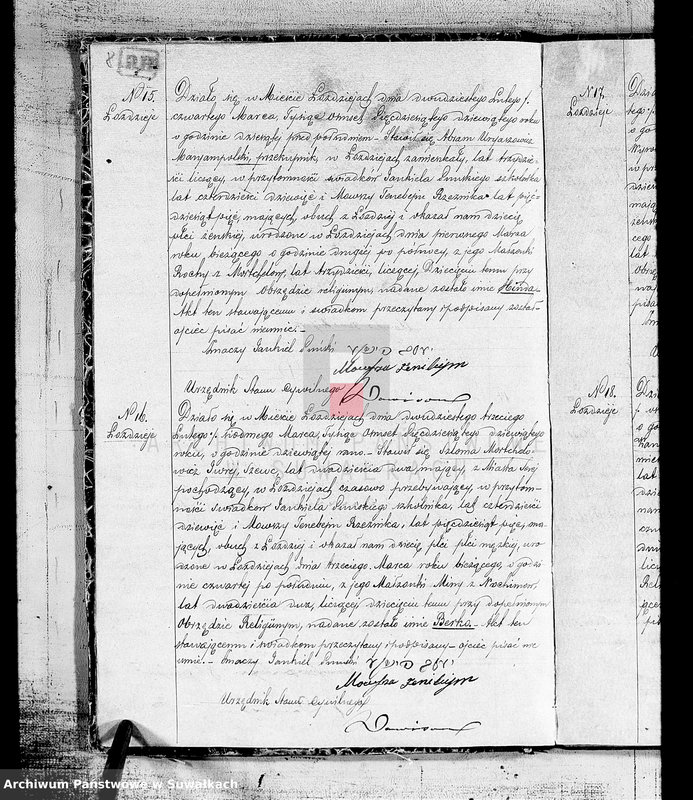 No 15.
Łoździeje
Działo się w Mieście Łoździejach dnia dwudziestego Lutego /.
czwartego Marca, Tysiąc Ośmset Pięćdziesiątego dziewiątego roku
o godzinie dziesiątej przed południem. Stawił się Abram
Maryampolski, przekupnik, w Łoździejach zamieszkały, lat trzydzie-
ści liczący, w przytomności świadków Jankiela Puńskiego szkolnika
lat czterdzieści dziewięć i Mowszy Tenebejm Rzeźnika lat pięć-
dziesiąt pięć, mających, obuch z Łoździej i okazał nam dziecię
płci żeńskiej, urodzone w Łoździejach dnia pierwszego Marca
roku bieżącego o godzinie drugiej po północy, z jego Małżonki
Rochy z Mortchelów, lat trzydzieści, liczącej, Dziecięciu temu przy
dopełnionym Obrzędzie religijnym, nadane zostało imie Hinda.
Akt ten stawającemu i świadkom przeczytany i podpisany został
ojciec pisać nieumie.-
Tłmaczy Jankiel Puński
Mowsza Zenibejm
Urzędnik Stanu Cywilnego
No 16.
Łoździeje
Działo się w Mieście Łoździejach dnia dwudziestego trzeciego
Lutego /. siodmego Marca, Tysiąc Ośmset Pięćdziesiątego dziewiątego
roku, o godzinie dziewiątej rano. Stawił się Szloma Mortchelo-
wicz Szewc, lat dwadzieścia dwa mający, z Miasta Serej
pochodzący, w Łoździejach czasowo przebywający, w przytom-
ności Świadków Jankiela Puńskiego szkolnika, lat czterdzieści
dziewięć i Mowszy Tenebejm Rzeźnika, lat pięćdziesiąt pięć, ma-
jących, obuch z Łoździej i okazał nam dziecię płci męzkiej, uro-
dzone w Łoździejach dnia trzeciego Marca roku bieżącego, o godzi-
nie czwartej po południu, z jego Małżonki Miny z
lat dwadzieścia dwa, liczącej, dziecięciu temu przy dopełnionym
Obrzędzie Religijnym, nadane zostało imie Berko. Akt ten
stawającemu i świadkom przeczytany i podpisany ojciec pisać nie
umie. Tłmaczy Jankiel Puński
Mowsza Zenibejm
Urzędnik Stanu Cywilnego
No 17.
Łoździeje
No 18.
Łoździeje
Archiwum Państwowe w Suwałkach